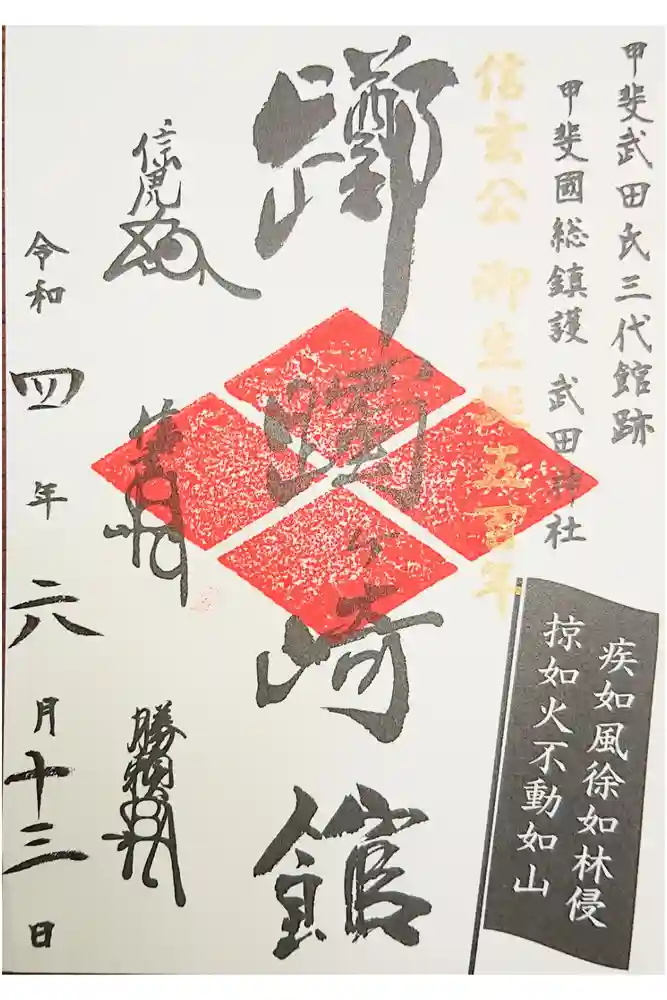 甲斐武田氏三代館跡
甲斐國総鎮護 武田神社
信玄公 御生誕五百年
躑躅ヶ崎館
疾如風徐如林侵
掠如火不動如山
信虎
晴信
勝頼
令和四年六月十三日